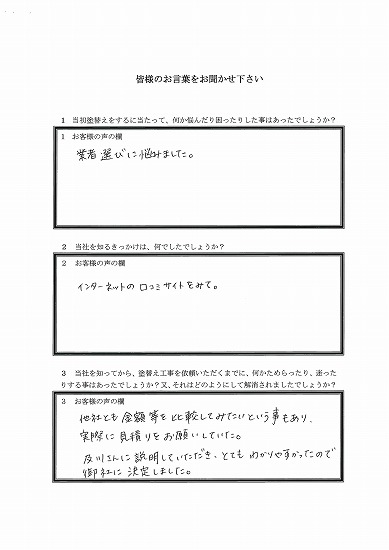 皆様のお言葉をお聞かせ下さい
1 当初塗替えをするに当たって、何か悩んだり困ったりした事はあったでしょうか？
1 お客様の声の欄
業者選びに悩みました。
2 当社を知るきっかけは、何でしたでしょうか？
2 お客様の声の欄
インターネットの口コミサイトをみて。
3 当社を知ってから、塗替え工事を依頼いただくまでに、何かためらったり、迷った
りする事はあったでしょうか？又、それはどのようにして解消されましたでしょうか？
3 お客様の声の欄
他社とも金額等を比較してみたいという事もあり、
実際に見積りをお願いしていた。
及川さんに説明していただき、とてもわかりやすかったので
御社に決定しました。